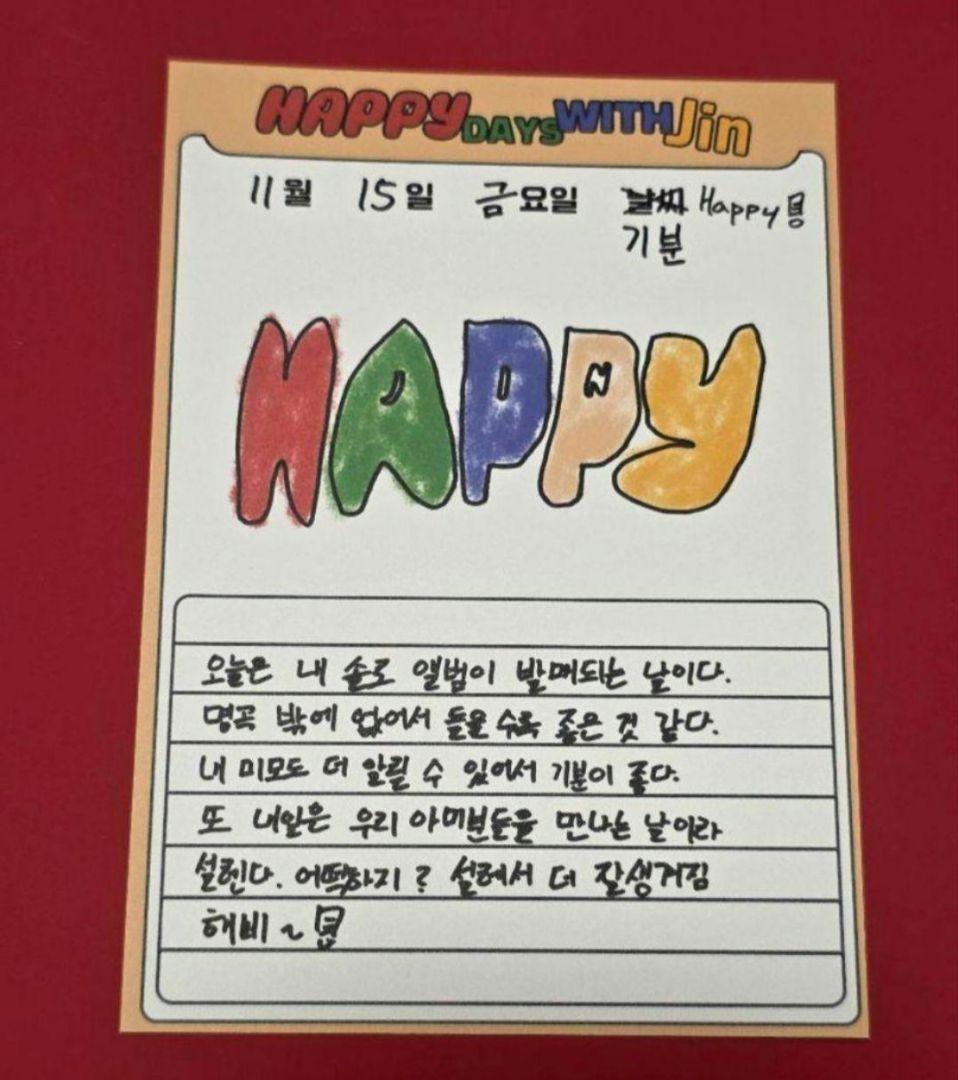 HAPPY DAYS WITH Jin
11월 15일 금요일 날씨 Happy
기분
HAPPY
JIN
오늘은 내 솔로 앨범이 발매되는 날이다.
명곡 밖에 없어서 들을 수록 좋은 것 같다.
내 미모도 더 알릴 수 있어서 기분이 좋다.
또 내일은 우리 아미분들을 만나는 날이라
설렌다. 어떡하지? 설레서 더 잘생겨짐
해비~